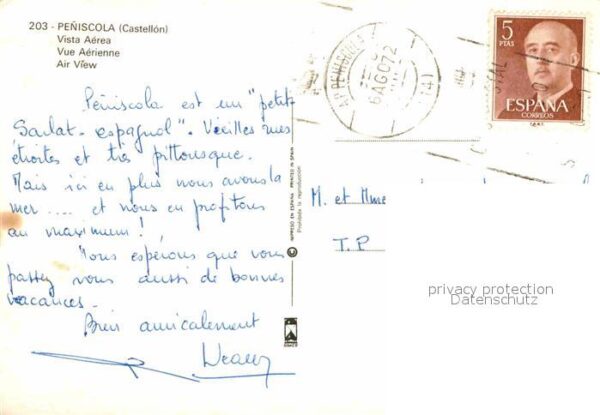 203 - PEÑISCOLA (Castellón)
Vista Aérea
Vue Aérienne
Air View
Péñiscola est un "petit
Sarlat - espagnol". Vieilles rues
étroites et très pittoresque.
Mais ici en plus nous avons la
mer .... et nous en profitons
au maximum!
Nous espérons que vous
passez vous aussi de bonnes
vacances.
Bien amicalement
IMPRESO EN ESPAÑA - PRINTED IN SPAIN
Prohibida la reproducción
PEÑISCOLA
6 AGO 72
5
PTAS
ESPAÑA
CORREOS
M. et Mme
T.P
privacy protection
Datenschutz